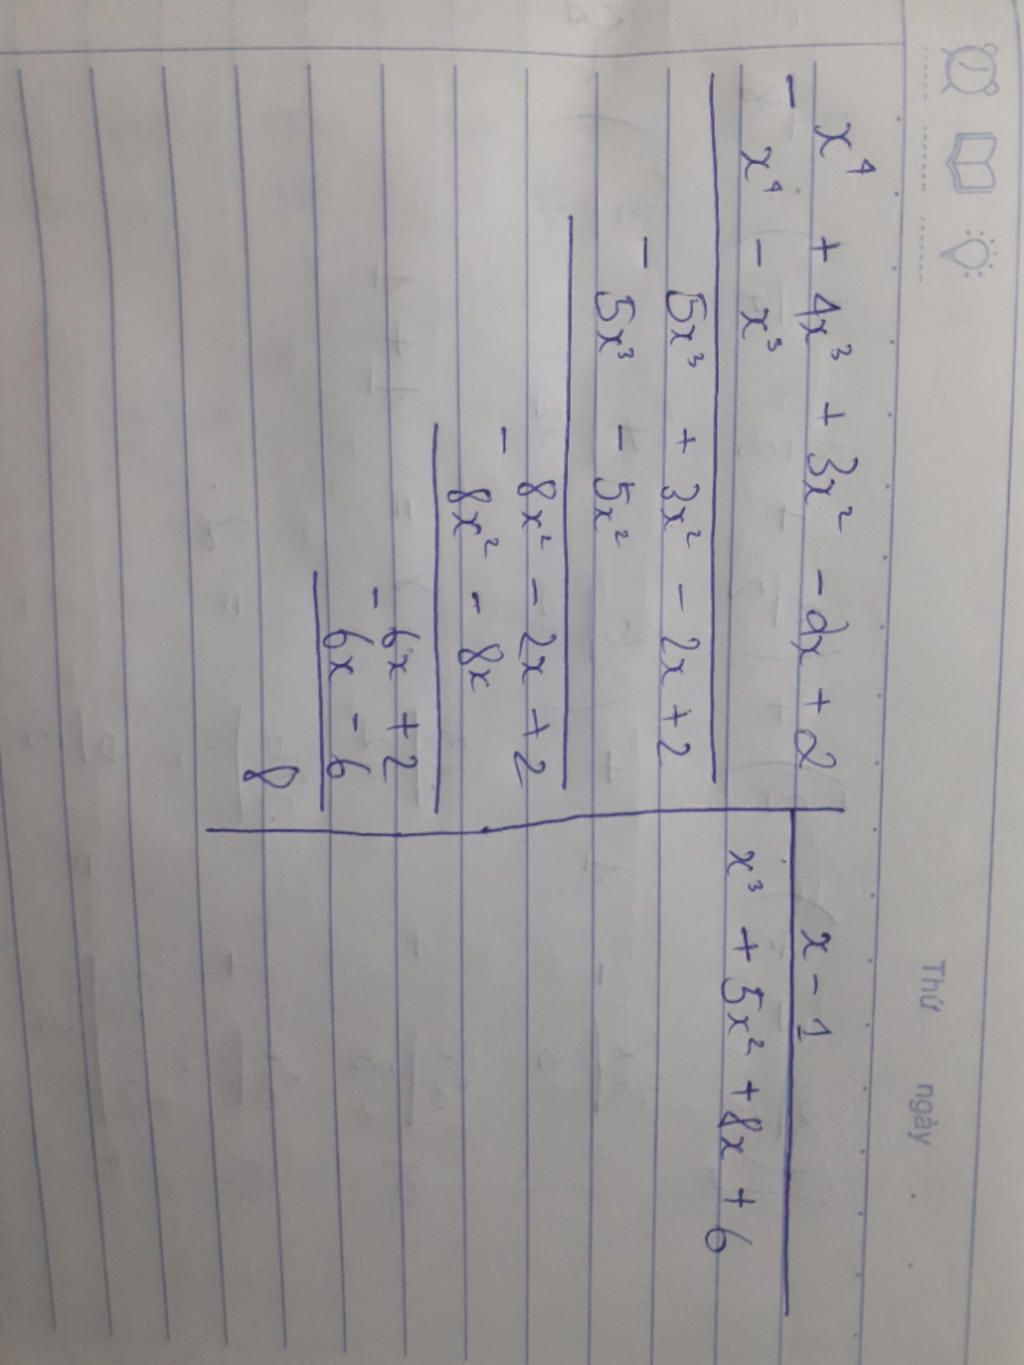 Thứ ngày
x⁴ + 4x³ + 3x² - 2x + 2 | x - 1
- x⁴ - x³ | x³ + 5x² + 8x + 6
5x³ + 3x² - 2x + 2
- 5x³ - 5x²
8x² - 2x + 2
- 8x² - 8x
6x + 2
- 6x - 6
8